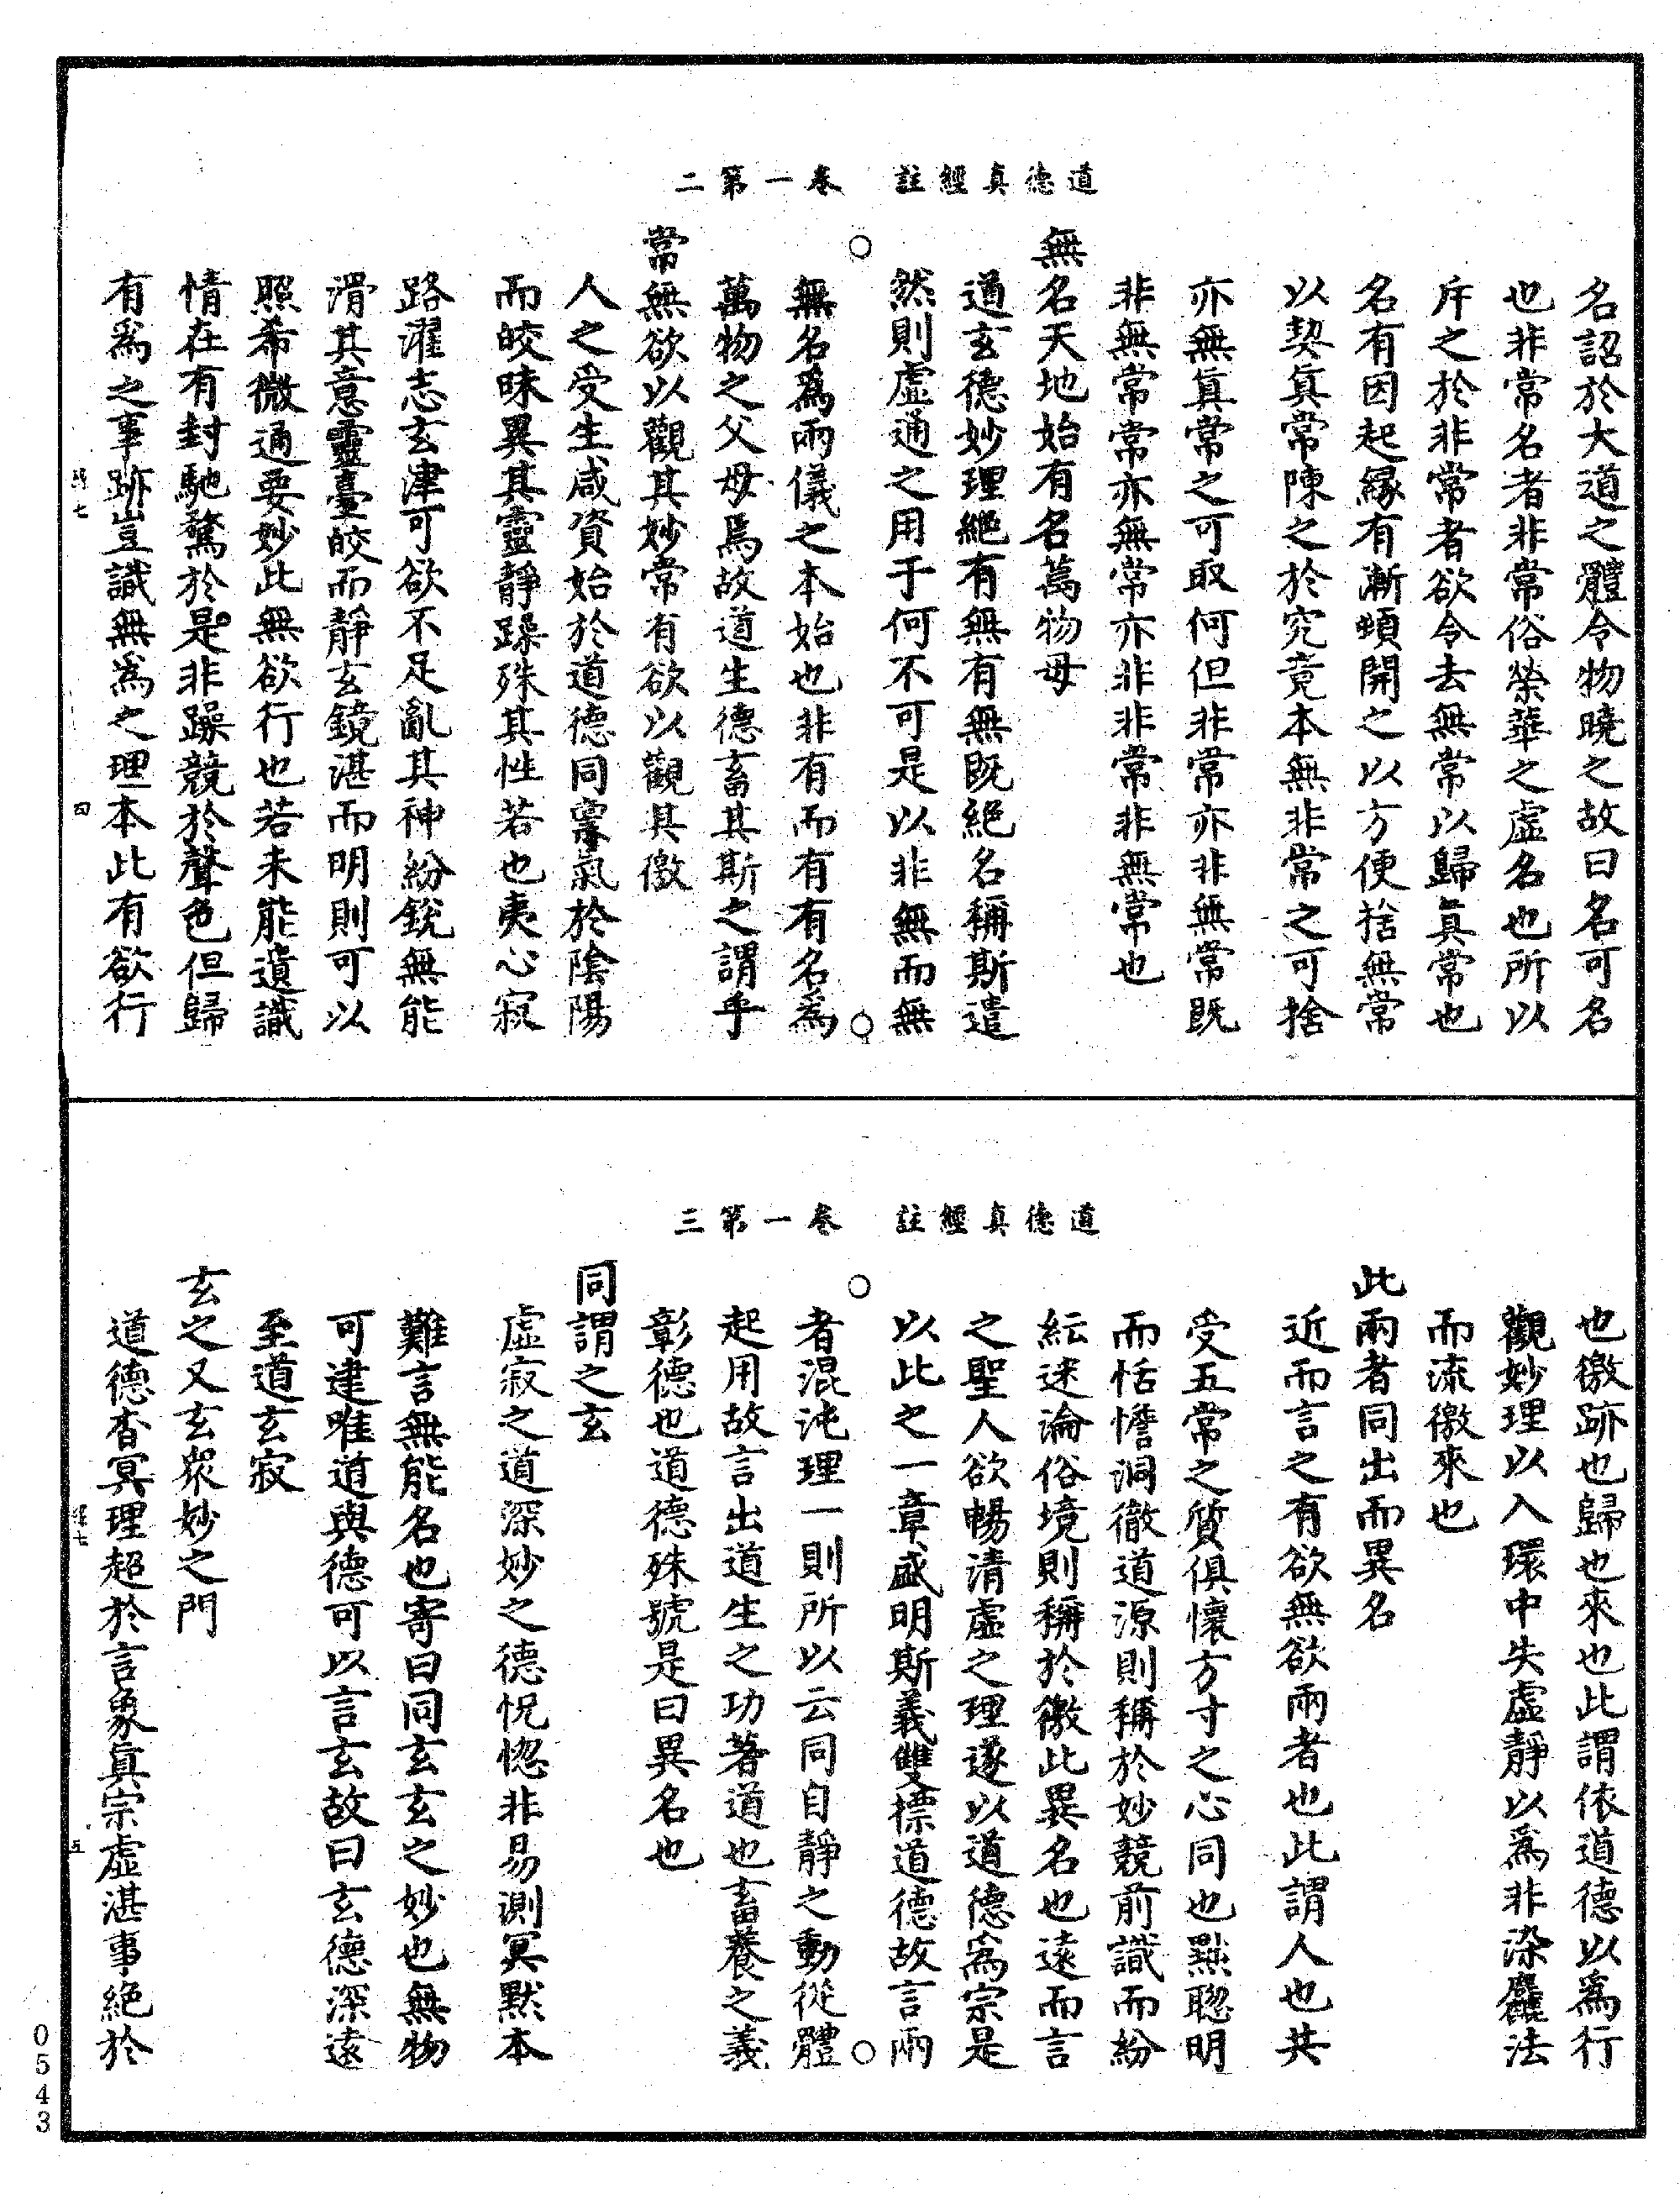 道德真經註　卷一第二
名詔於大道之體令物曉之故曰名可名
也非常名者非常俗榮華之虛名也所以
斥之於非常者欲令去無常以歸眞常也
名有因起緣有漸頓開之以方便捨無常
以契眞常陳之於究竟本無非常之可捨
亦無眞常之可取何但非常亦非無常既
非無常常亦無常亦非非常非無常也
無名天地始有名萬物母
道玄德妙理絕有無有無既絕名稱斯遣
然則虛通之用于何不可是以非無而無
無名爲兩儀之本始也非有而有有名爲
萬物之父母焉故道生德畜其斯之謂乎
常無欲以觀其妙常有欲以觀其徼
人之受生咸資始於道德同稟氣於陰陽
而皎昧異其靈靜躁殊其性若也夷心寂
路濯志玄津可欲不足亂其神紛銳無能
滑其意靈臺皎而靜玄鏡湛而明則可以
照希微通要妙此無欲行也若未能遺識
情在有封馳騖於是非躁競於聲色但歸
有爲之事跡豈識無爲之理本此有欲行
四
道德真經註　卷一第三
也徼跡也歸也來也此謂依道德以爲行
觀妙理以入環中失虛靜以爲非染麤法
而流徼來也
此兩者同出而異名
近而言之有欲無欲兩者也此謂人也共
受五常之質俱懷方寸之心同也點聰明
而恬憺洞徹道源則稱於妙競前識而紛
紜迷淪俗境則稱於徼此異名也遠而言
之聖人欲暢清虛之理遂以道德爲宗是
以此之一章盛明斯義雙標道德故言兩
者混沌理一則所以云同自靜之動從體
起用故言出道生之功著道也畜養之義
彰德也道德殊號是曰異名也
同謂之玄
虛寂之道深妙之德怳惚非易測冥默本
難言無能名也寄曰同玄玄之妙也無物
可建唯道與德可以言玄故曰玄德深遠
至道玄寂
玄之又玄眾妙之門
道德杳冥理超於言象眞宗虛湛事絕於
五
0543